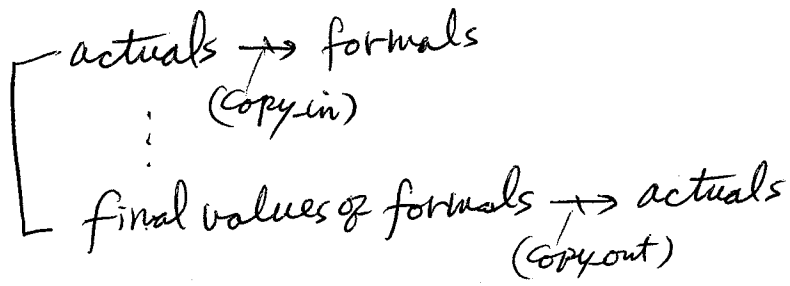 actuals → formals
(copy-in)
final values of formals → actuals
(copy-out)